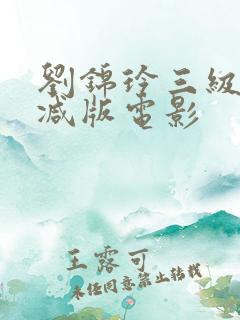 劉錦玲三級
減版電影
王露可
未經同意禁止轉載